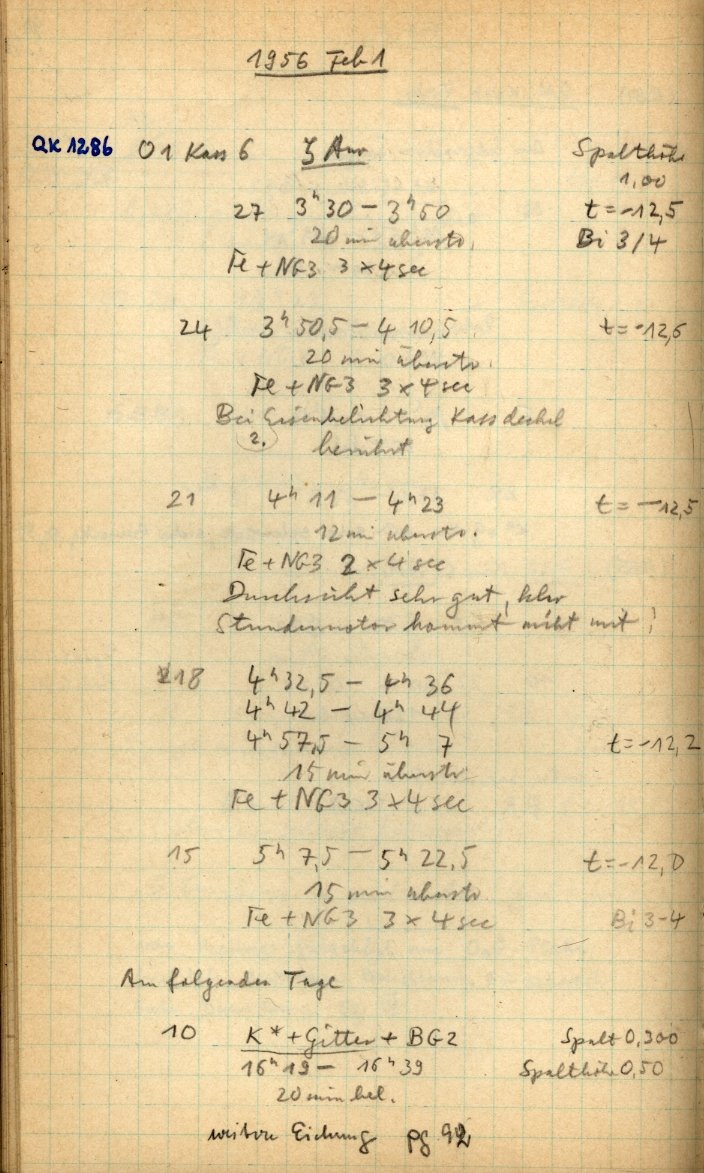 1956 Feb 1
QK 1286 01 Kass 6 ζ Aur Spalthöhe
1,00
27 3ʰ30 – 3ʰ50 t = -12,5
20 min überstr. Bi 3/4
Fe + NG3 3 × 4 sec
24 3ʰ50,5 – 4 10,5 t = -12,6
20 min überstr.
Fe + NG3 3 × 4 sec
Bei Eisenbelichtung Kassdeckel
2. berührt
21 4ʰ 11 – 4ʰ23 t = -12,5
12 min überstr.
Fe + NG3 2 × 4 sec
Durchsicht sehr gut, klar
Stundenmotor kommt nicht mit!
18 4ʰ32,5 – 4ʰ 36
4ʰ 42 – 4ʰ 44
4ʰ 57,5 – 5ʰ 7 t = -12,2
15 min überstr.
Fe + NG3 3 × 4 sec
15 5ʰ 7,5 – 5ʰ 22,5 t = -12,0
15 min überstr.
Fe + NG3 3 × 4 sec Bi 3-4
Am folgenden Tage
10 K* + Gitter + BG2 Spalt 0,300
16ʰ 19 – 16ʰ 39 Spalthöhe 0,50
20 min bel.
weitere Eichung pg 92